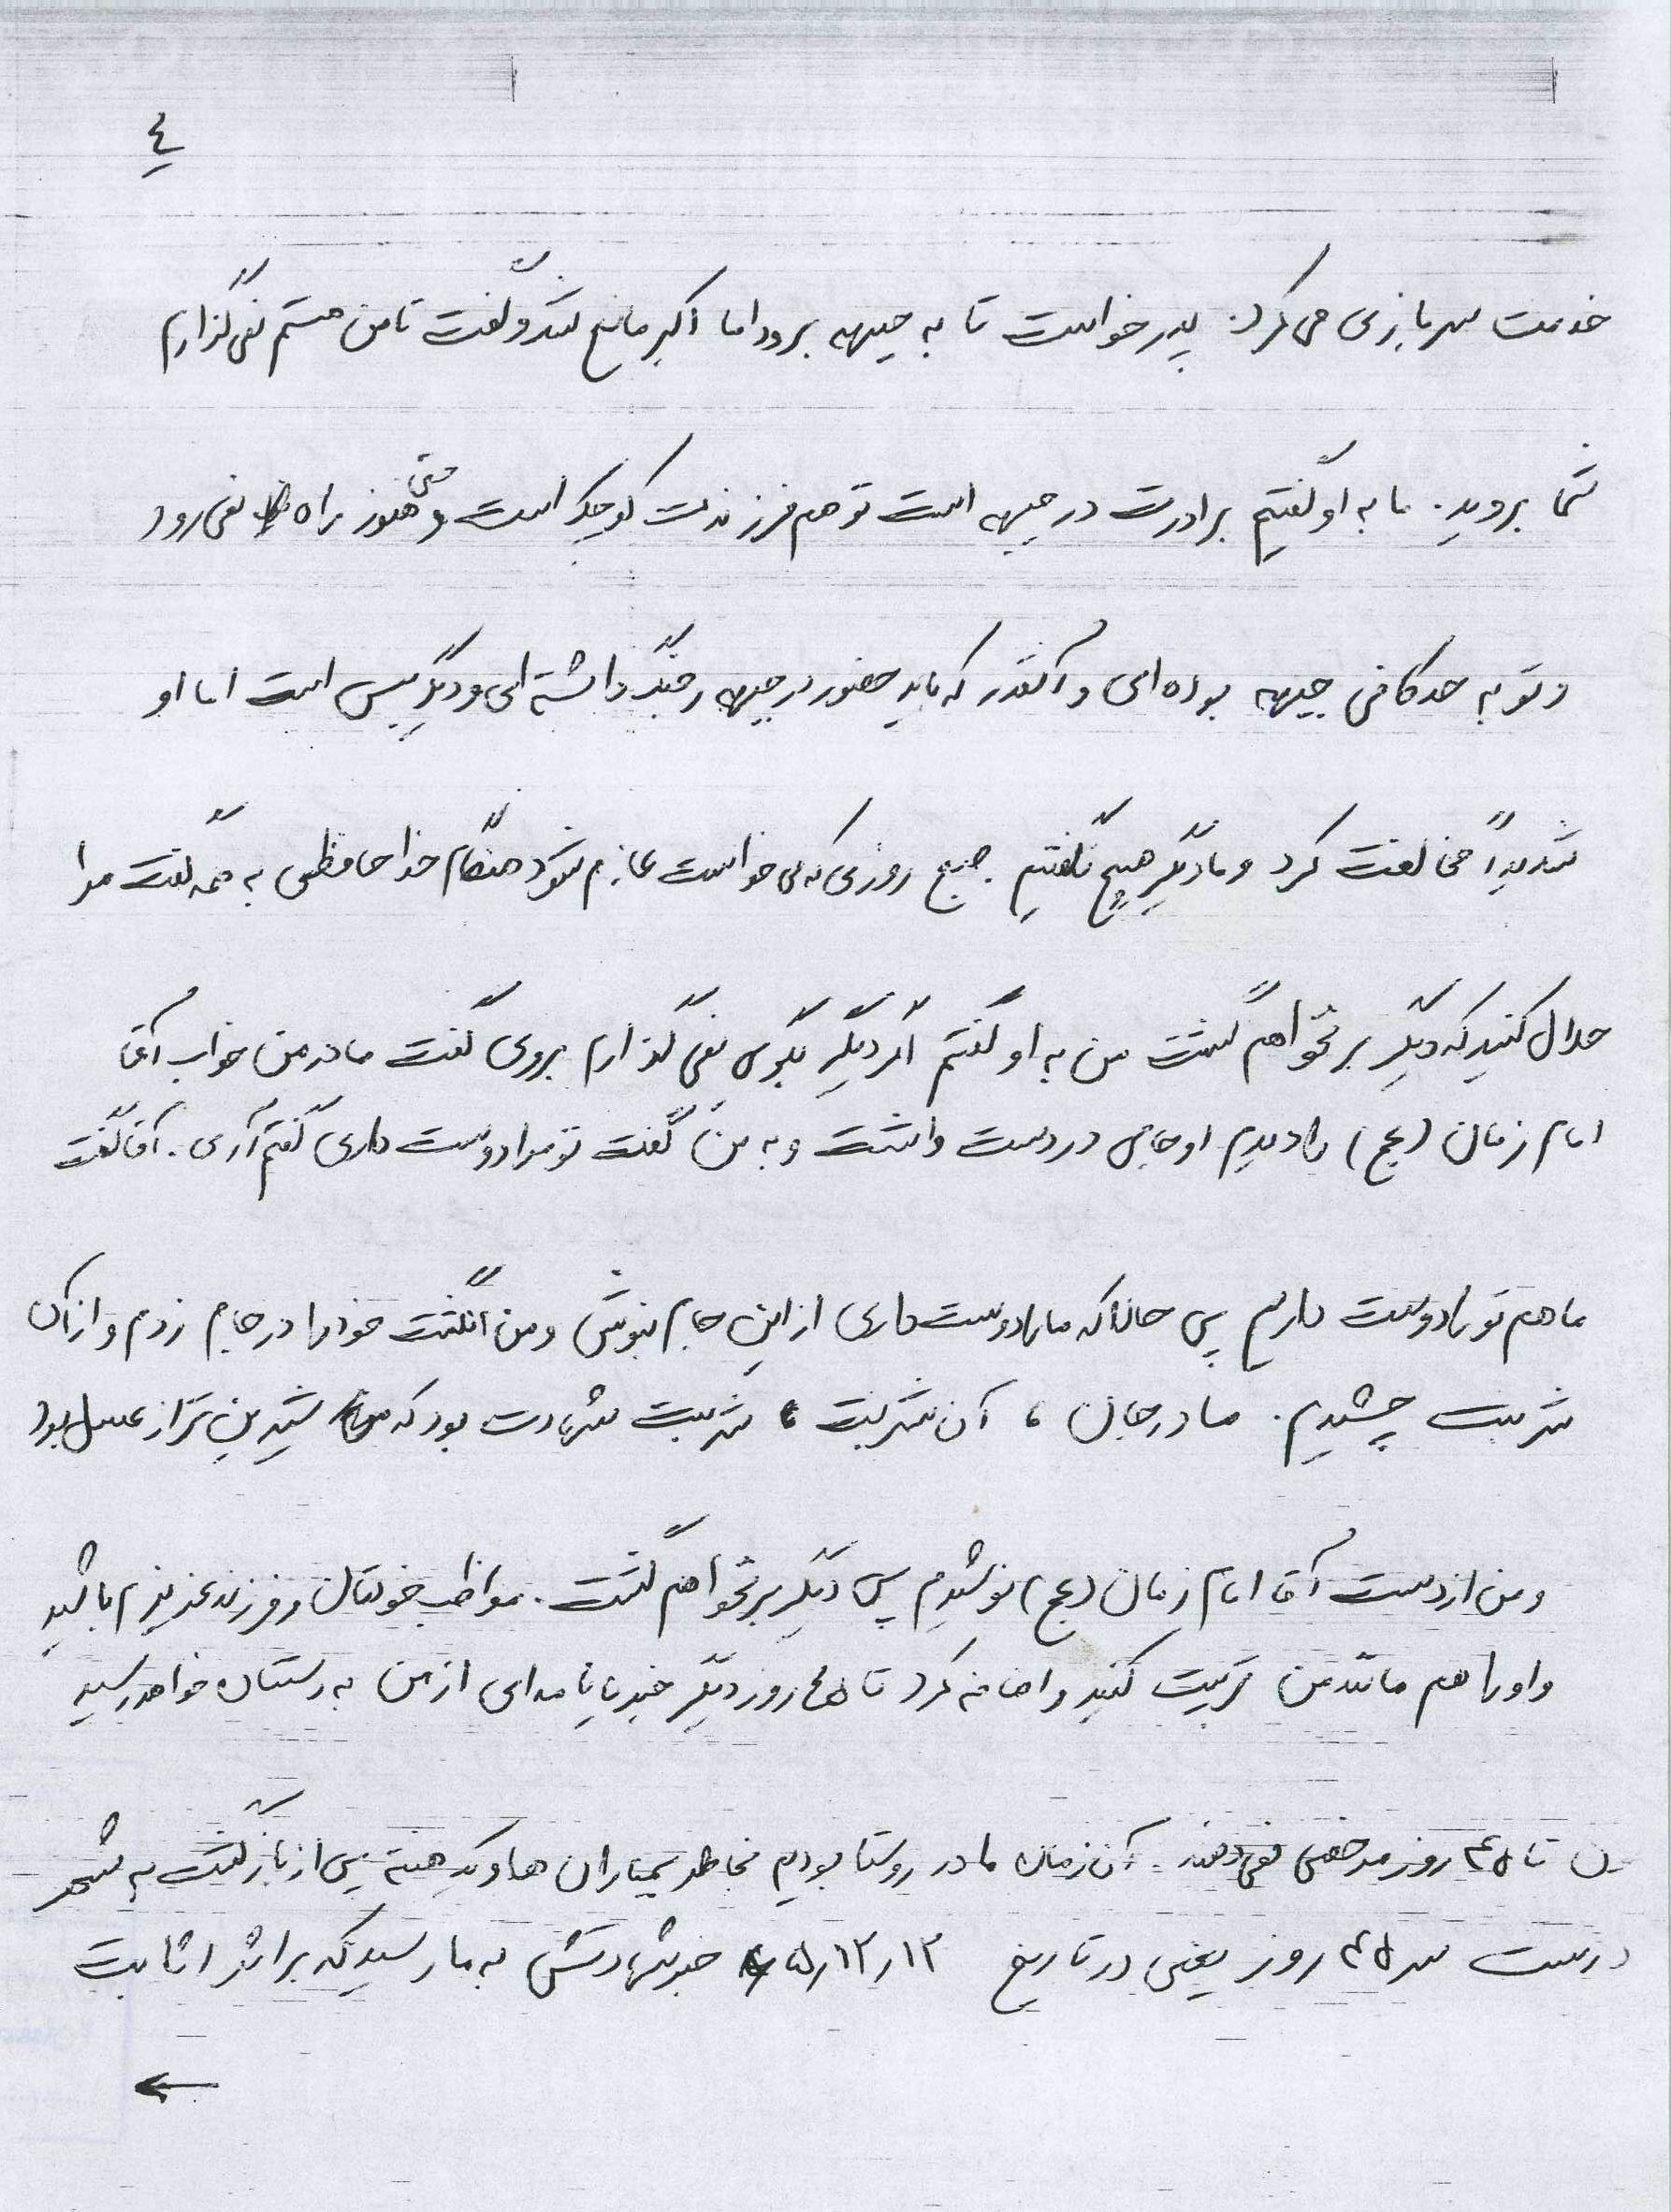 ٤
خدمت سربازی می کرد. پدر خواست تا به جبهه برود اما اکبر مانع شد و گفت تا من هستم نمی گذارم
شما بروید. ما به او گفتیم برادرت در جبهه است تو هم فرزندت کوچک است حتی هنوز راه نمی رود
و تو به حد کافی جبهه بوده ای و آنقدر که باید حضور در جبهه و جنگ داشته ای و دیگر بس است اما او
شدیداً مخالفت کرد و ما دیگر هیچ نگفتیم. صبح روزی که می خواست عازم شود هنگام خداحافظی به همه گفت مرا
حلال کنید که دیگر برنخواهم گشت من به او گفتم اگر دیگر بگویی نمی گذارم بروی گفت مادر من خواب آقا
امام زمان (عج) را دیدم او جامی در دست داشت و به من گفت تو مرا دوست داری گفتم آری. آقا گفت
ما هم تو را دوست داریم پس حالا که ما را دوست داری از این جام بنوش و من انگشت خود را در جام زدم و از آن
شربت چشیدم. مادر جان، آن شربت، شربت شهادت بود که شیرین تر از عسل بود
و من از دست آقا امام زمان (عج) نوشیدم پس دیگر برنخواهم گشت. مواظب خودتان و فرزند عزیزم باشید
و او را هم مانند من تربیت کنید و اضافه کرد تا ۴۵ روز دیگر خبر یا نامه ای از من به دستتان خواهد رسید
تا ۴۵ روز مرخصی نمی دهند. آن زمان ما در روستا بودیم بخاطر بمباران ها و یک هفته پس از بازگشت به شهر
درست سر ۴۵ روز یعنی در تاریخ ۶۵/۱۲/۱۲ خبر شهادتش به ما رسید که بر اثر اثابت
←